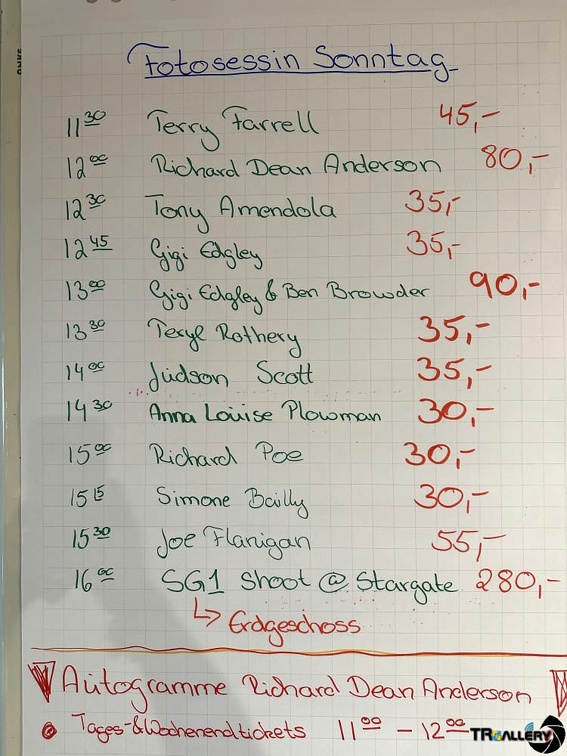 Fotosessin Sonntag
11 30 Terry Farrell 45,-
12 00 Richard Dean Anderson 80,-
12 30 Tony Amendola 35,-
12 45 Gigi Edgley 35,-
13 00 Gigi Edgley & Ben Browder 90,-
13 30 Teryl Rothery 35,-
14 00 Judson Scott 35,-
14 30 Anna Louise Plowman 30,-
15 00 Richard Poe 30,-
15 15 Simone Bailly 30,-
15 30 Joe Flanigan 55,-
16 00 SG1 Shoot @ Stargate 280,-
↳ Erdgeschoss
Autogramme Richard Dean Anderson
Tages-&Wochenendtickets 11 00 - 12 00